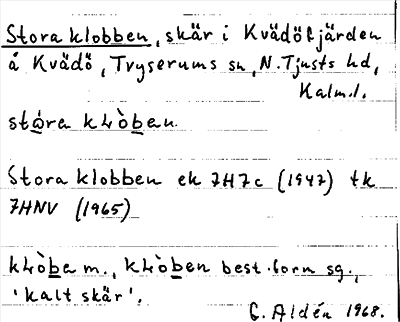 Stora klobben, skär i Kvädöfjärden
å Kvädö, Tryserums sn, N. Tjusts hd,
Kalm.l.
stóra kLòben
Stora klobben ek 7H7c (1947) tk
7HNV (1965)
kLòbe m., kLòben best. form sg.,
'kalt skär'.
G. Aldén 1968.